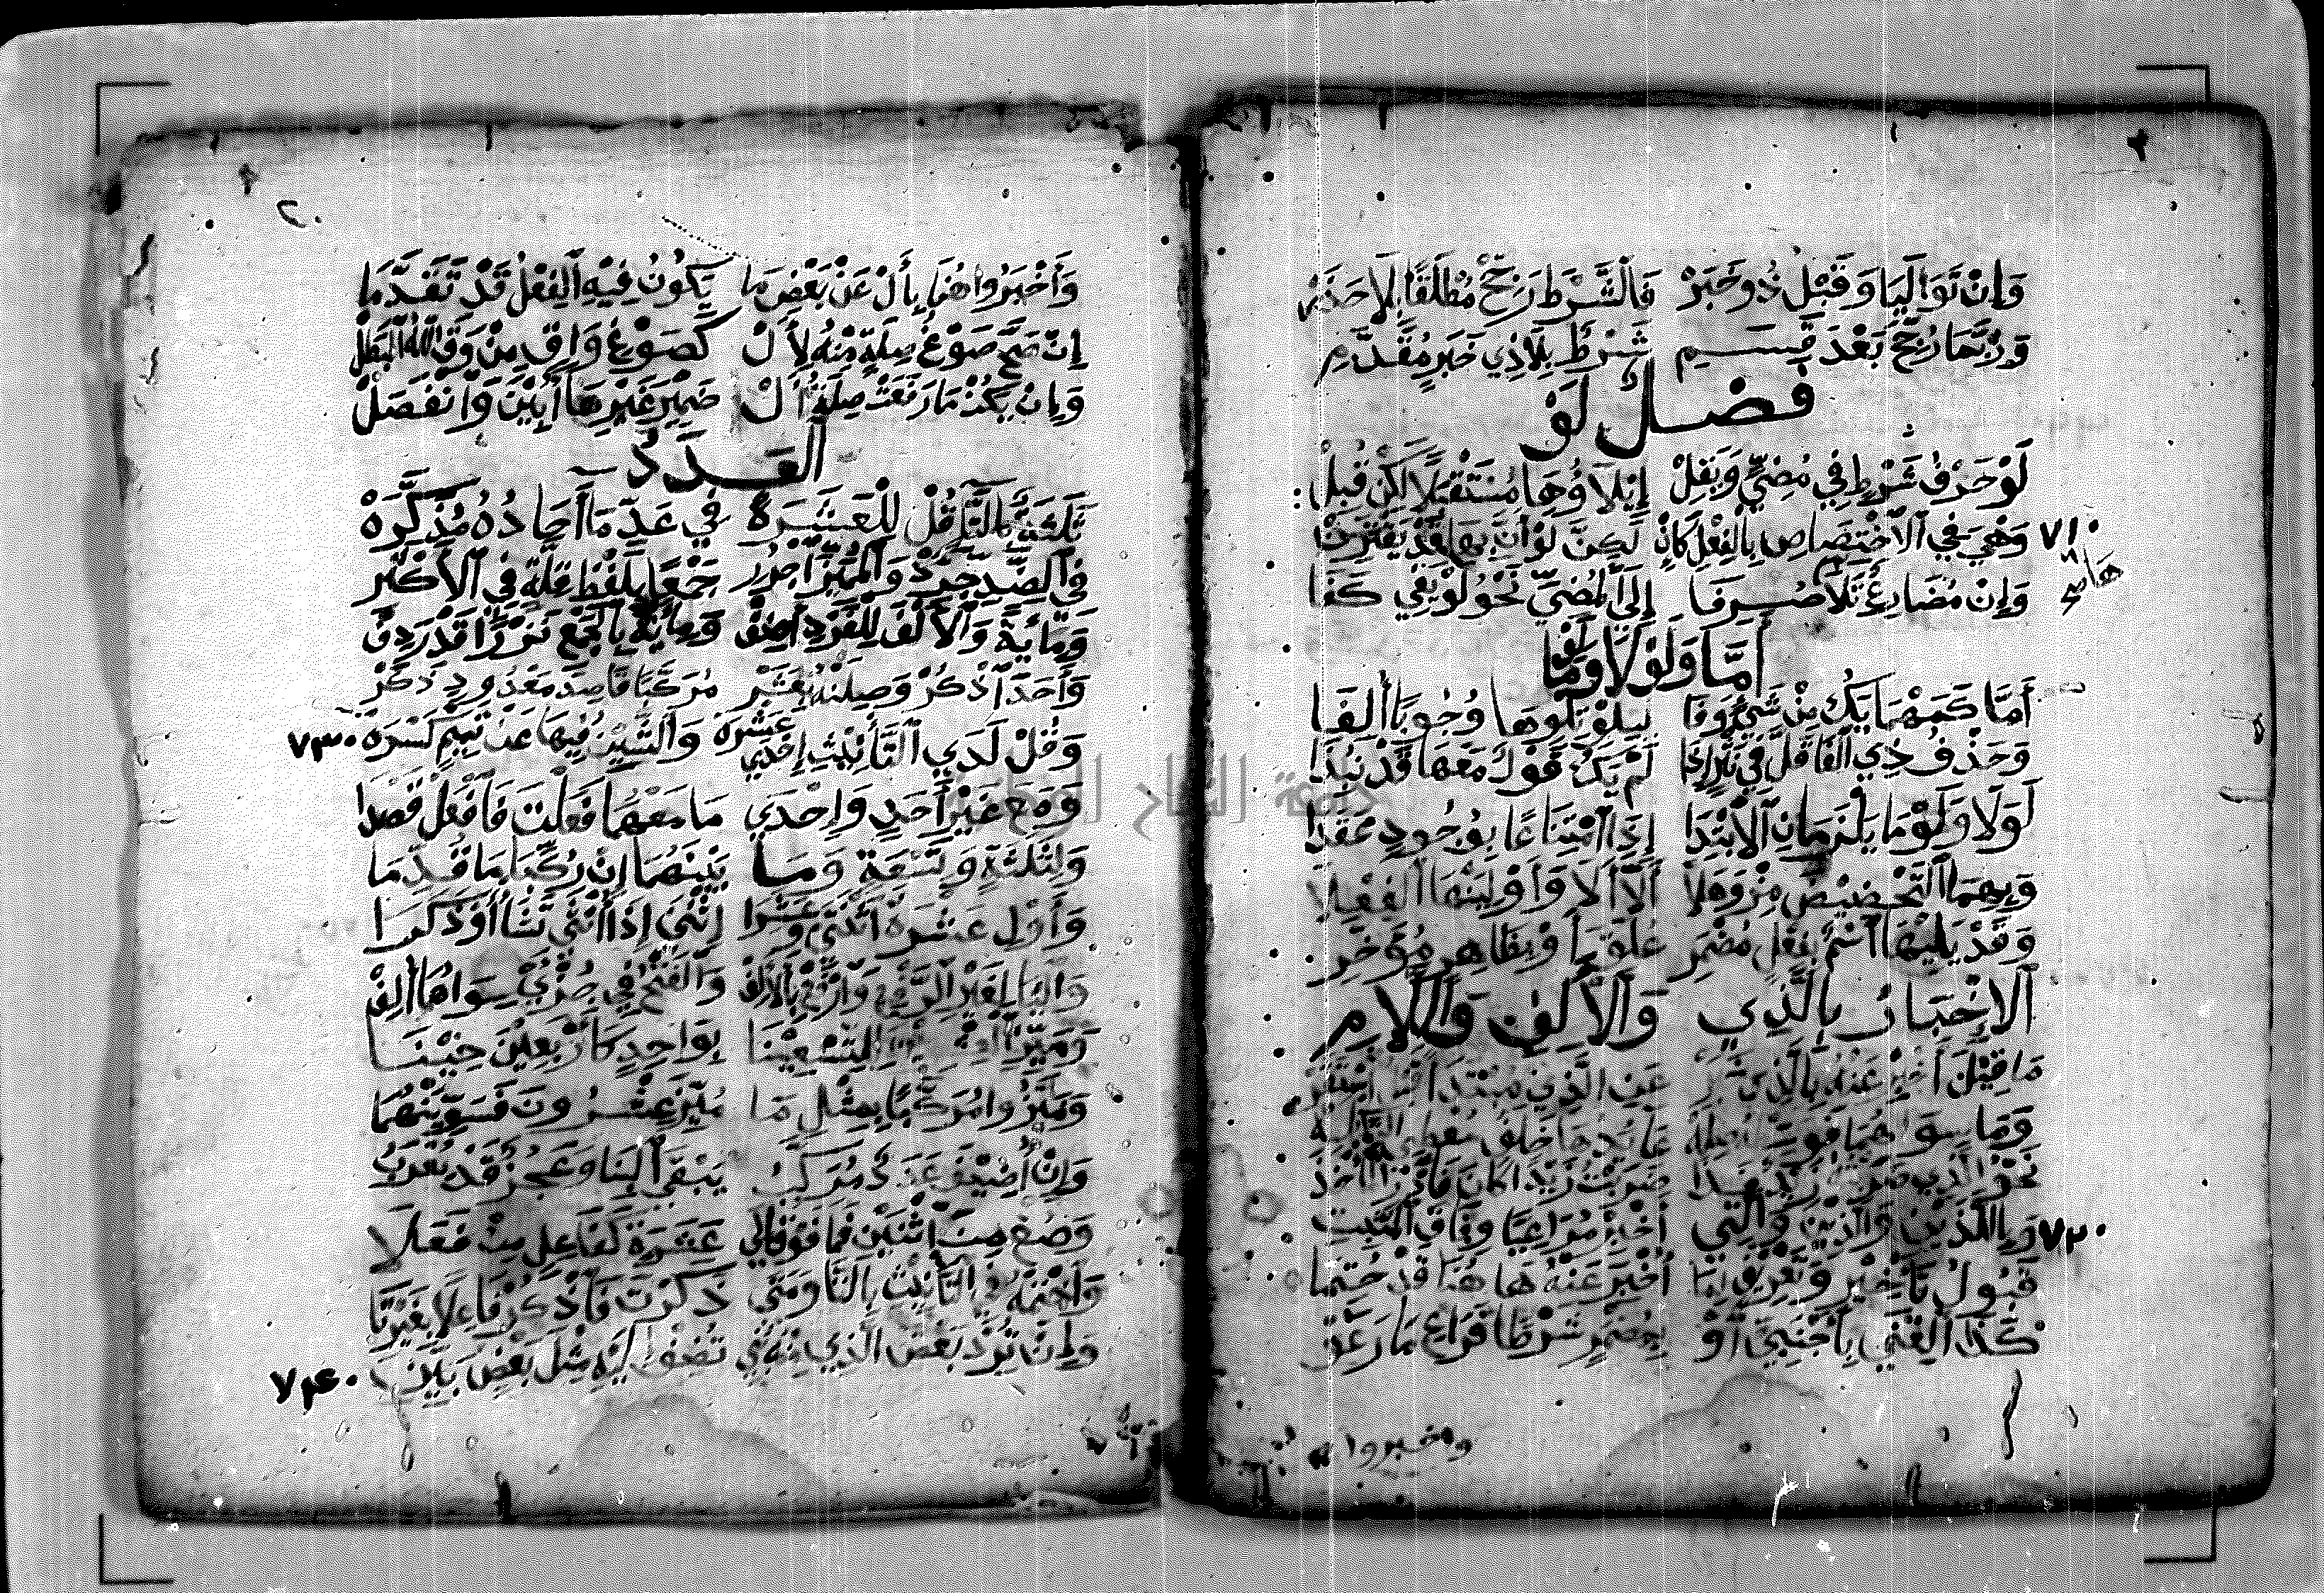 وَإِنْ تَوَالَيَا وَقَبْلُ ذُو خَبَرْ فَالشَّرْطَ رَجِّحْ مُطْلَقًا بِلَا حَذَرْ
وَرُبَّمَا رُجِّحَ بَعْدَ قَسَمِ شَرْطٌ بِلَا ذِي خَبَرٍ مُقَدَّمِ
فصل لَوْ
لَوْ حَرْفُ شَرْطٍ فِي مُضِيٍّ وَيَقِلْ إِيلَاؤُهَا مُسْتَقْبَلًا لَكِنْ قُبِلْ
٧١٠ وَهْيَ فِي الْاِخْتِصَاصِ بِالْفِعْلِ كَإِنْ لَكِنَّ لَوْ أَنَّ بِهَا قَدْ تَقْتَرِنْ
وَإِنْ مُضَارِعٌ تَلَاهَا صُرِفَا إِلَى الْمُضِيِّ نَحْوُ لَوْ يَفِي كَفَى
أَمَّا وَلَوْلَا وَلَوْمَا
أَمَّا كَمَهْمَا يَكُ مِنْ شَيْءٍ وَفَا لِتِلْوِ تِلْوِهَا وُجُوبًا أُلِفَا
وَحَذْفُ ذِي الْفَا قَلَّ فِي نَثْرٍ إِذَا لَمْ يَكُ قَوْلٌ مَعَهَا قَدْ نُبِذَا
لَوْلَا وَلَوْمَا يَلْزَمَانِ الْاِبْتِدَا إِذَا امْتِنَاعًا بِوُجُودٍ عَقَدَا
وَبِهِمَا التَّحْضِيضَ مِزْ وَهَلَّا أَلَّا أَلَا وَأَوْلِيَنْهَا الْفِعْلَا
وَقَدْ يَلِيهَا اسْمٌ بِفِعْلٍ مُضْمَرِ عُلِّقَ أَوْ بِظَاهِرٍ مُؤَخَّرِ
الْإِخْبَارُ بِالَّذِي وَالْأَلِفِ وَاللَّامِ
مَا قِيلَ أَخْبِرْ عَنْهُ بِالَّذِي خَبَرْ عَنِ الَّذِي مُبْتَدَأً قَبْلُ اسْتَقَرْ
وَمَا سِوَاهُمَا فَوَسِّطْهُ صِلَهْ عَائِدُهَا خَلَفُ مُعْطِي التَّكْمِلَهْ
نَحْوُ الَّذِي ضَرَبْتُهُ زَيْدٌ فَذَا ضَرَبْتُ زَيْدًا كَانَ فَادْرِ الْمَأْخَذَا
٧٢٠ وَبِاللَّذَيْنِ وَالَّذِينَ وَالَّتِي أَخْبِرْ مُرَاعِيًا وِفَاقَ الْمُثْبَتِ
قَبُولُ تَأْخِيرٍ وَتَعْرِيفٍ لِمَا أُخْبِرَ عَنْهُ هَا هُنَا قَدْ حُتِمَا
كَذَا الْغِنَى بِأَجْنَبِيٍّ أَوْ بِمُضْمَرٍ شَرْطٌ فَرَاعِ مَا رَعَوْا
واخبروا
٢٠
وَأَخْبَرُوا هُنَا بِأَلْ عَنْ بَعْضِ مَا يَكُونُ فِيهِ الْفِعْلُ قَدْ تَقَدَّمَا
إِنْ صَحَّ صَوْغُ صِلَةٍ مِنْهُ لِأَلْ كَصَوْغِ وَاقٍ مِنْ وَقَى اللَّهُ الْبَطَلْ
وَإِنْ يَكُنْ مَا رَفَعَتْ صِلَةُ أَلْ ضَمِيرَ غَيْرِهَا أُبِينَ وَانْفَصَلْ
الْعَدَدُ
ثَلَثَةً بِالتَّاءِ قُلْ لِلْعَشَرَهْ فِي عَدِّ مَا آحَادُهُ مُذَكَّرَهْ
فِي الضِّدِّ جَرِّدْ وَالْمُمَيِّزَ اجْرُرِ جَمْعًا بِلَفْظِ قِلَّةٍ فِي الْأَكْثَرِ
وَمِائَةً وَالْأَلْفَ لِلْفَرْدِ أَضِفْ وَمِائَةٌ بِالْجَمْعِ نَزْرًا قَدْ رُدِفْ
وَأَحَدَ اذْكُرْ وَصِلَنْهُ بِعَشَرْ مُرَكِّبًا قَاصِدَ مَعْدُودٍ ذَكَرْ
وَقُلْ لَدَى التَّأْنِيثِ إِحْدَى عَشْرَهْ وَالشِّينُ فِيهَا عَنْ تَمِيمٍ كَسْرَهْ ٧٣٠
وَمَعَ غَيْرِ أَحَدٍ وَإِحْدَى مَا مَعَهُمَا فَعَلْتَ فَافْعَلْ قَصْدَا
وَلِثَلَثَةٍ وَتِسْعَةٍ وَمَا بَيْنَهُمَا إِنْ رُكِّبَا مَا قُدِّمَا
وَأَوْلِ عَشْرَةَ اثْنَتَيْ وَعَشَرَا اثْنَيْ إِذَا أُنْثَى تَشَا أَوْ ذَكَرَا
وَالْيَا لِغَيْرِ الرَّفْعِ وَارْفَعْ بِالْأَلِفْ وَالْفَتْحُ فِي جُزْءَيْ سِوَاهُمَا أُلِفْ
وَمَيِّزِ الْعِشْرِينَ لِلتِّسْعِينَا بِوَاحِدٍ كَأَرْبَعِينَ حِينَا
وَمَيَّزُوا مُرَكَّبًا بِمِثْلِ مَا مُيِّزَ عِشْرُونَ فَسَوِّيَنْهُمَا
وَإِنْ أُضِيفَ عَدَدٌ مُرَكَّبُ يَبْقَ الْبِنَا وَعَجُزٌ قَدْ يُعْرَبُ
وَصُغْ مِنَ اثْنَيْنِ فَمَا فَوْقُ إِلَى عَشَرَةٍ كَفَاعِلٍ مِنْ فَعَلَا
وَاخْتِمْهُ فِي التَّأْنِيثِ بِالتَّا وَمَتَى ذَكَّرْتَ فَاذْكُرْ فَاعِلًا بِغَيْرِ تَا
وَإِنْ تُرِدْ بَعْضَ الَّذِي مِنْهُ بُنِي تُضِفْ إِلَيْهِ مِثْلَ بَعْضٍ بَيِّنِ ٧٤٠